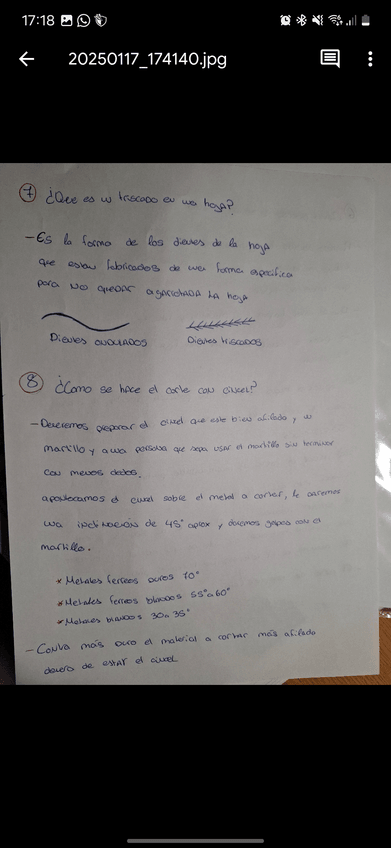 17:18
20250117_174140.jpg
7 ¿Que es un triscado en una hoja?
-Es la forma de los dientes de la hoja
que estan fabricados de una forma especifica
para NO QUEDAR agarrotada LA hoja
Dientes ONDULADOS Dientes triscados
8 ¿Como se hace el corte con cincel?
-Deberemos preparar el cincel que este bien afilado, y un
martillo y a una persona que sepa usar el martillo sin terminar
con menos dedos.
apontocamos el cincel sobre el metal a cortar, le daremos
una inclinación de 45° aprox y daremos golpes con el
martillo.
* Metales ferreos duros 70°
* Metales ferreos blandos 55° a 60°
* Metales blandos 30 a 35°
- Contra más duro el material a cortar más afilado
debera de estar el cincel